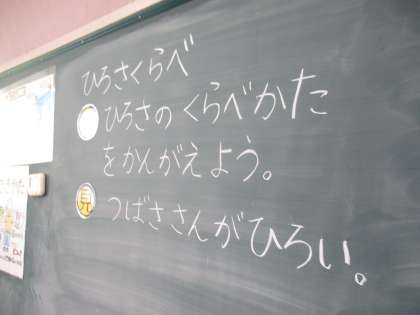 ひろさくらべ
ひろさのくらべかた
をかんがえよう。
見 つばささんがひろい。